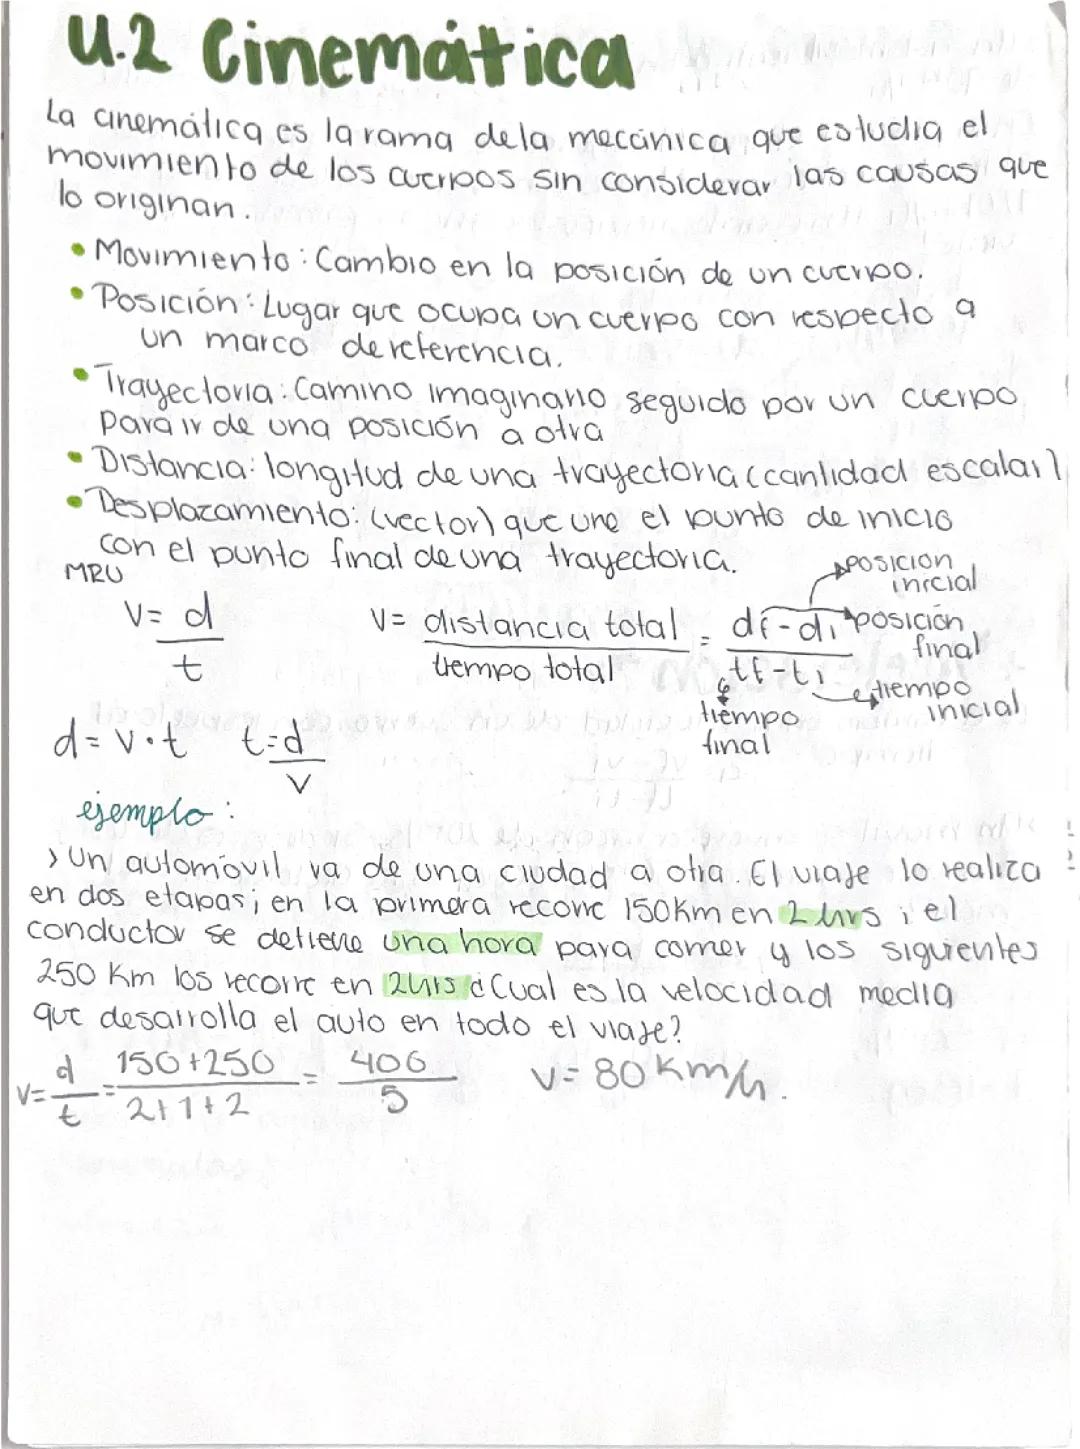 U.2 Cinemática
La cinemática es la rama de la mecánica que estudia el
movimiento de los cuerpos sin considerar las causas que
lo originan.
• Movimiento: Cambio en la posición de un cuerpo.
• Posición: Lugar que ocupa un cuerpo con respecto a
un marco de referencia.
• Trayectoria: Camino imaginario seguido por un cuerpo
para ir de una posición a otra
• Distancia: longitud de una trayectoria (cantidad escalar)
• Desplazamiento: (vector) que une el punto de inicio
con el punto final de una trayectoria.
MRU
v = d / t
v = distancia total / tiempo total = df - di / tf - ti
posicion inicial
posición final
tiempo inicial
tiempo final
d = v · t t = d / v
ejemplo:
> Un automóvil va de una ciudad a otra. El viaje lo realiza
en dos etapas; en la primera recorre 150 Km en 2 hrs; el
conductor se detiene una hora para comer y los siguientes
250 Km los recorre en 2hrs ¿Cual es la velocidad media
que desarrolla el auto en todo el viaje?
v = d / t = 150 + 250 / 2 + 1 + 2 = 400 / 5 v = 80 Km/h.